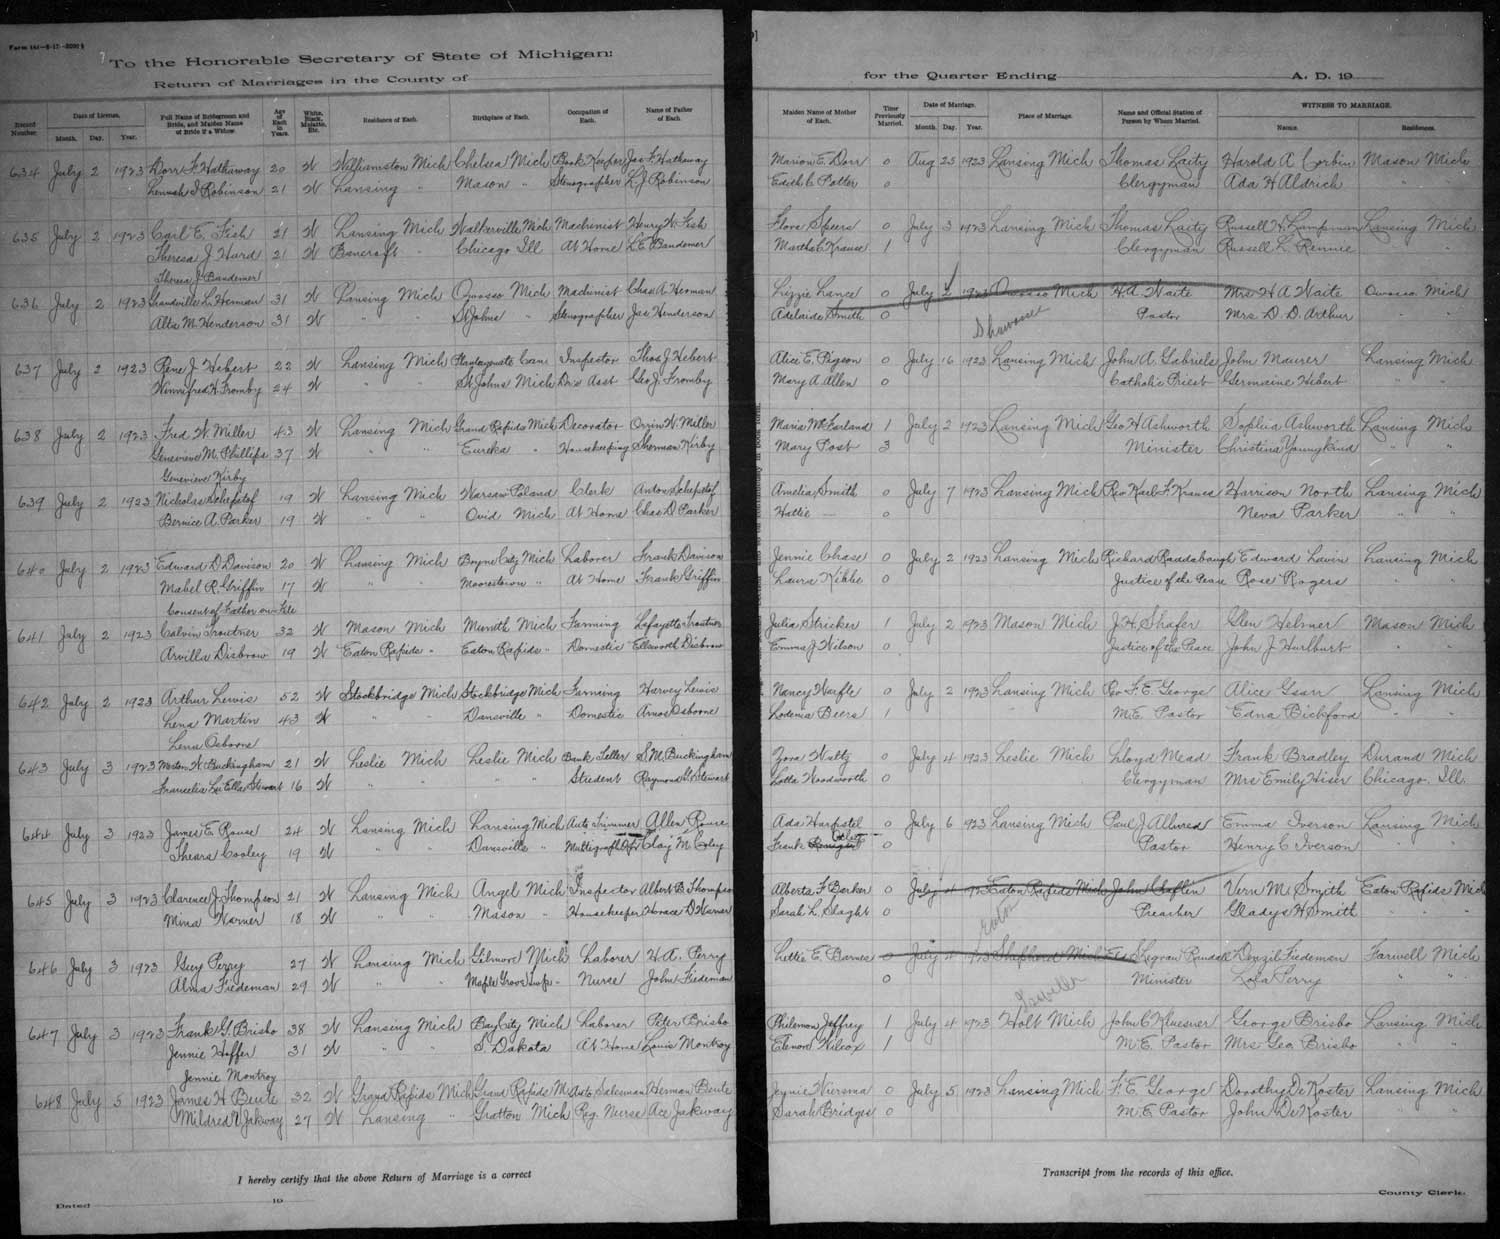 Form 141—8-17—2000
To the Honorable Secretary of State of Michigan:
Return of Marriages in the County of
for the Quarter Ending A. D. 19
Record Number. Date of License. Month. Day. Year. Full Name of Bridegroom and Bride, and Maiden Name of Bride if a Widow. Age of Each in Years. White, Black, Mulatto, Etc. Residence of Each. Birthplace of Each. Occupation of Each. Name of Father of Each.
Maiden Name of Mother of Each. Times Previously Married. Date of Marriage. Month. Day. Year. Place of Marriage. Name and Official Station of Person by Whom Married. WITNESS TO MARRIAGE. Name. Residence.
634 July 2 1923 Dorr F. Hathaway 20 W Williamston Mich Chelsea Mich Book Keeper Jas F. Hathaway Marion E. Dorr 0 Aug 25 1923 Lansing Mich Thomas Laity Harold A Corbin Mason Mich
Robinson 21 W Lansing " Mason " Stenographer L J Robinson Edith C Potter 0 Clergyman Ada H Aldrich " "
635 July 2 1923 Carl E. Fish 21 W Lansing Mich Walkerville Mich Machinist Henry W. Fish Speers 0 July 3 1923 Lansing Mich Thomas Laity Russell Lansing Mich
Theresa J Hurd 21 W Bancroft " Chicago Ill At Home L E Bandemer Martha C Krause 1 Clergyman Russell L. Rennie "
Theresa J Bandemer
636 July 2 1923 Grandville L. Herman 31 W Lansing Mich Owosso Mich Machinist Chas A. Herman Lizzie Lance 0 July 2 1923 Owosso Mich H A. Waite Mrs H A Waite Owosso Mich
Alta M. Henderson 31 W " " St Johns " Stenographer Jas Henderson Adelaide Smith 0 Shiawassee Pastor Mrs D. D. Arthur " "
637 July 2 1923 Rene J Hebert 22 W Lansing Mich Can Inspector Thos J Hebert Alice E. Pigeon 0 July 16 1923 Lansing Mich John A. Gabriels John Maurer Lansing Mich
Winnifred H. Fromby 24 W " " St Johns Mich Asst Geo J. Fromby Mary A. Allen 0 Catholic Priest Germaine Hebert " "
638 July 2 1923 Fred W. Miller 43 W Lansing Mich Grand Rapids Mich Decorator Orrin W. Miller Maria McFarland 1 July 2 1923 Lansing Mich Geo H Ashworth Sophia Ashworth Lansing Mich
Genevieve M. Phillips 37 W " " Eureka " Housekeeping Sherman Kirby Mary Post 3 Minister Christina Youngkind " "
Genevieve Kirby
639 July 2 1923 Nicholas Schepstof 19 W Lansing Mich Warsaw Poland Clerk Anton Schepstof Amelia Smith 0 July 7 1923 Lansing Mich Rev Karl F. Krauss Harrison North Lansing Mich
Bernice A. Parker 19 W " " Ovid Mich At Home Chas D. Parker Hattie — 0 Neva Parker " "
640 July 2 1923 Edward D. Davison 20 W Lansing Mich Boyne City Mich Laborer Frank Davison Jennie Chase 0 July 2 1923 Lansing Mich Richard Raudabaugh Edward Lavin Lansing Mich
Mabel R. Griffin 17 W " " Moorestown " At Home Frank Griffin Laura Kibbe 0 Justice of the Peace Rose Rogers " "
Consent of Father on File
641 July 2 1923 Calvin Troutner 32 W Mason Mich Munith Mich Farming Lafayette Troutner Julia Stricker 1 July 2 1923 Mason Mich J H. Shafer Glen Helmer Mason Mich
Arvilla Disbrow 19 W Eaton Rapids " Eaton Rapids " Domestic Ellsworth Disbrow Emma J Wilson 0 Justice of the Peace John J Hurlburt " "
642 July 2 1923 Arthur Lewis 52 W Stockbridge Mich Stockbridge Mich Farming Harvey Lewis Nancy 0 July 2 1923 Lansing Mich Rev F. E. George Alice Lansing Mich
Lena Martin 43 W " " Dansville " Domestic Amos Osborne Lodemia Beers 1 M.E. Pastor Edna Bickford " "
Lena Osborne
643 July 3 1923 W. Buckingham 21 W Leslie Mich Leslie Mich Bank Teller S. M. Buckingham Zora Waltz 0 July 4 1923 Leslie Mich Lloyd Mead Frank Bradley Durand Mich
Francelia LuElla Stewart 16 W " " " " Student Raymond Stewart Lotta Woodworth 0 Clergyman Mrs Emily Hiser Chicago. Ill.
644 July 3 1923 James E. Rouse 24 W Lansing Mich Lansing Mich Auto Trimmer Allen Rouse Ada Harpstel 0 July 6 1923 Lansing Mich Paul J Allured Emma Iverson Lansing Mich
Thears Cooley 19 W " " Dansville " Multigraph Opr Clay M. Coley Frank 0 Pastor Henry C Iverson " "
645 July 3 1923 Clarence J Thompson 21 W Lansing Mich Angel Mich Inspector Albert B Thompson Alberta F Barker 0 July 4 1923 Eaton Rapids Mich John Claflin Vern M. Smith Eaton Rapids Mich
Mina Warner 18 W " " Mason " Housekeeper Horace D Warner Sarah L. Slaght 0 Eaton Preacher Gladys H Smith " "
646 July 3 1923 Guy Perry 27 W Lansing Mich Gilmore Mich Laborer H. A. Perry Lettie E Barnes 0 July 4 1923 Shepherd Mich Denzil Fiedeman Farwell Mich
Alma Fiedeman 29 W " " Maple Grove Twp " Nurse John Fiedeman 0 Minister Lola Perry " "
647 July 3 1923 Frank G. Brisbo 38 W Lansing Mich Bay City Mich Laborer Peter Brisbo Philemon Jeffrey 1 July 4 1923 Holt Mich John C Kluesner George Brisbo Lansing Mich
Jennie Hoffer 31 W " " S. Dakota At Home Louis Montroy Elenore Wilcox 1 M.E. Pastor Mrs Geo Brisbo " "
Jennie Montroy
648 July 5 1923 James H Beute 32 W Grand Rapids Mich Grand Rapids M Auto Salesman Herman Beute Jennie Wiersma 0 July 5 1923 Lansing Mich F. E. George Dorothy DeKoster Lansing Mich
Mildred V. Jakway 27 W Lansing " Grattan Mich Reg. Nurse Ace Jakway Sarah Bridges 0 M.E Pastor John DeKoster " "
I hereby certify that the above Return of Marriage is a correct
Transcript from the records of this office.
Dated 19
County Clerk.